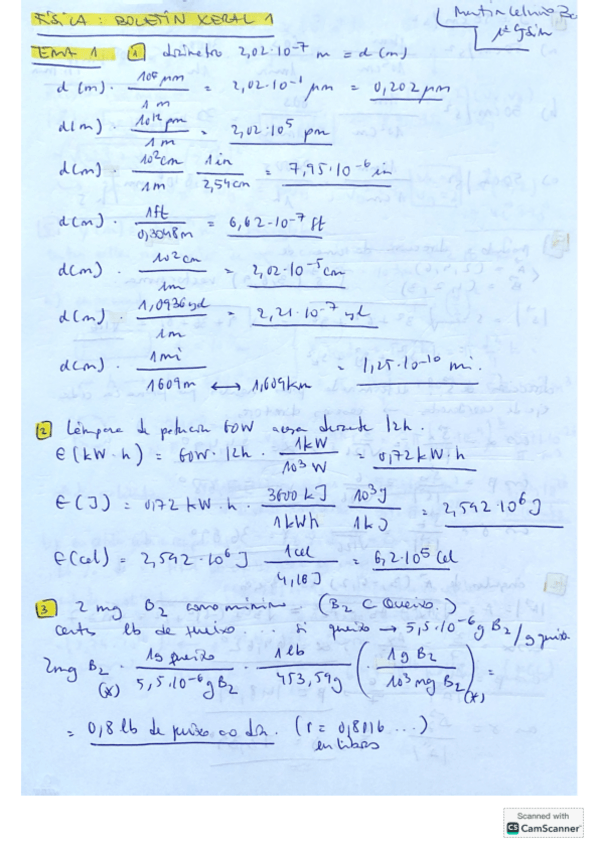 FÍSICA : BOLETÍN XERAL 1
TEMA 1 1 diámetro 2,02·10⁻⁷ m = d (m)
d (m) · 10⁶ μm / 1 m = 2,02·10⁻¹ μm = 0,202 μm
d(m) · 10¹² pm / 1 m = 2,02·10⁵ pm
d(m) · 10² cm / 1m · 1 in / 2,54cm = 7,95·10⁻⁶ in
d(m) · 1ft / 0,3048m = 6,62·10⁻⁷ ft
d(m) · 10² cm / 1m = 2,02·10⁻⁵ cm
d(m) · 1,0936yd / 1m = 2,21·10⁻⁷ yd
d(m) · 1mi / 1609m ↔ 1,609km = 1,25·10⁻¹⁰ mi.
2 Lámpara de potencia 60W acesa durante 12h.
E (kW·h) = 60W · 12h · 1kW / 10³ W = 0,72 kW·h
E (J) = 0,72 kW·h · 3600 kJ / 1kWh · 10³J / 1kJ = 2,592·10⁶ J
E(cal) = 2,592·10⁶ J · 1cal / 4,18J = 6,2·10⁵ cal
3 2 mg B₂ como mínimo = (B₂ C Queixo.)
lb de queixo ... si queixo → 5,5·10⁻⁶g B₂/g queixo.
2mg B₂ (*) · 1g queixo / 5,5·10⁻⁶gB₂ · 1 lb / 453,59g ( · 1g B₂ / 10³ mg B₂ )(*) =
= 0,8 lb de queixo ao día. (r = 0,8016 ...)
en libras
Scanned with
CS CamScanner